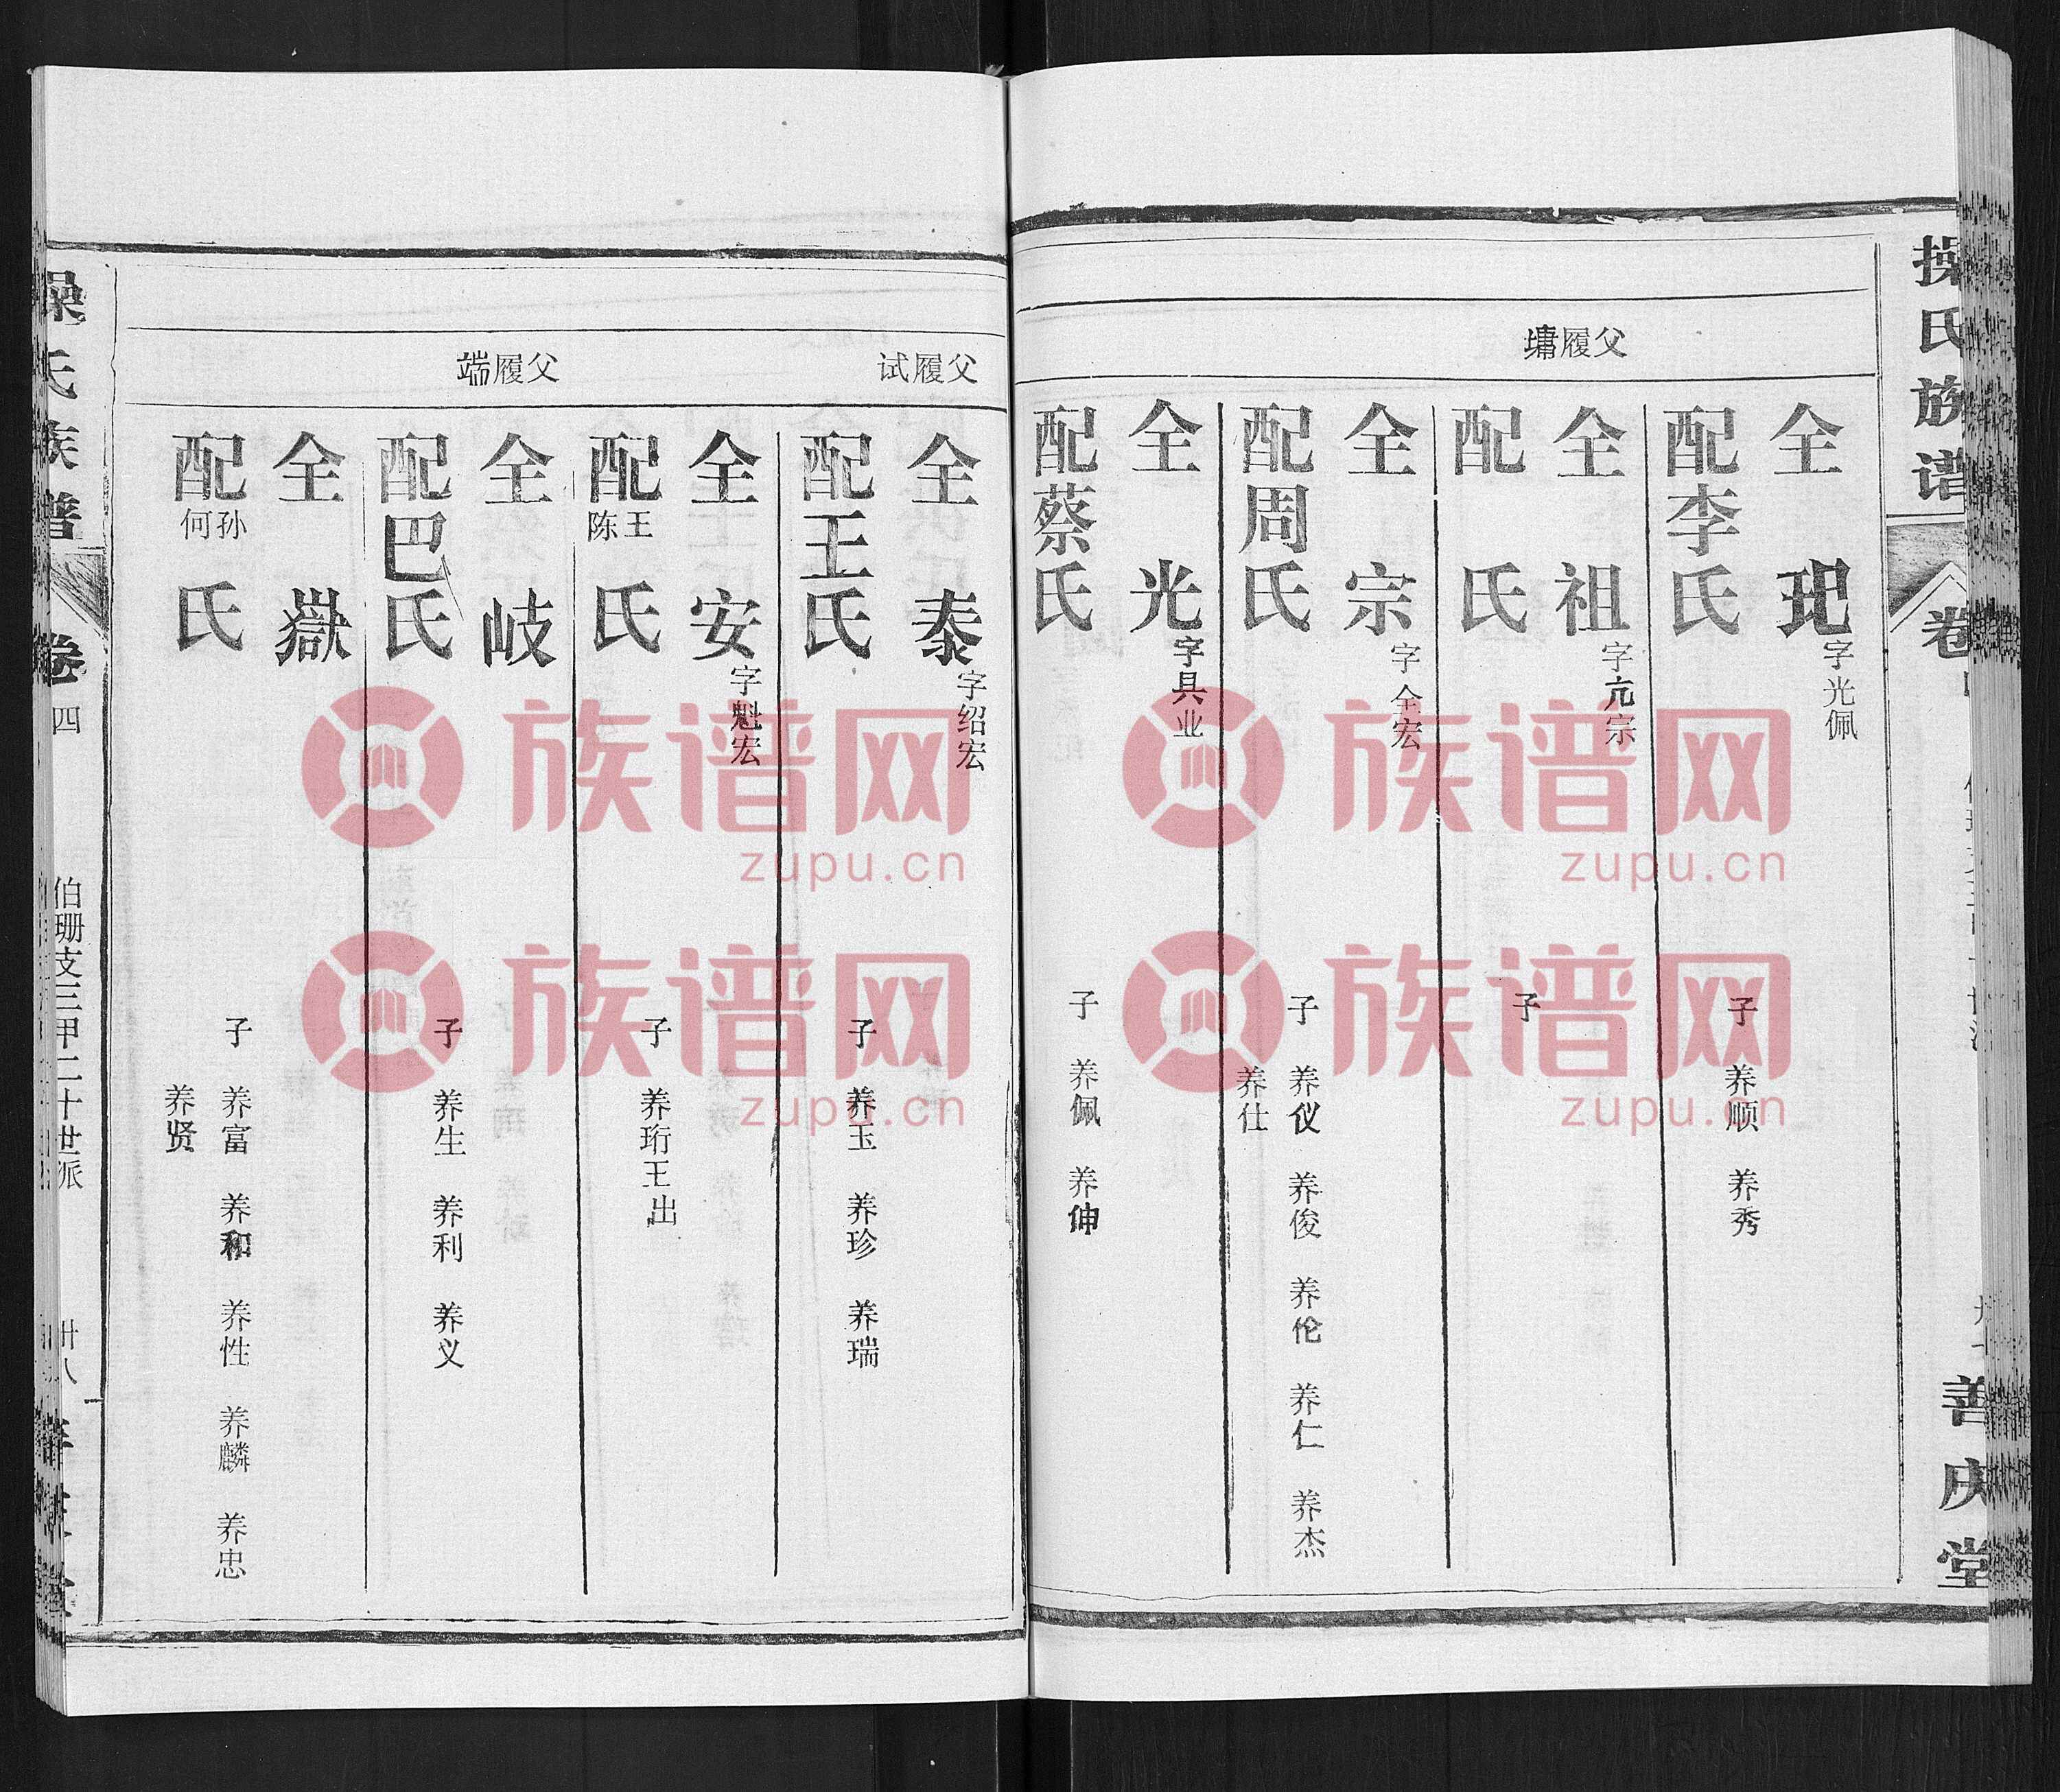 操氏族谱
卷
善庆堂
父履墉
全玘字光佩
配李氏
子 养顺 养秀
全祖字亢宗
配氏
子
全宗字全宏
配周氏
子 养仪 养俊 养伦 养仁 养杰
养仕
全光字具业
配蔡氏
子 养佩 养伸
父履试
全泰字绍宏
配王氏
子 养玉 养珍 养瑞
全安字魁宏
配王陈氏
子 养珩王出
父履端
全岐
配巴氏
子 养生 养利 养义
全嶽
配孙何氏
子 养富 养和 养性 养麟 养忠
养贤
操氏族谱
卷四
伯珊支三甲二十世派
廿八
族谱网
zupu.cn
族谱网
zupu.cn
族谱网
zupu.cn
族谱网
zupu.cn